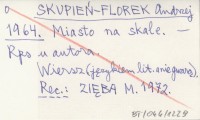 o SKUPIEŃ-FLOREK Andrzej
1964. Miasto na skale. —
Rps u autora.
Wiersz (językiem lit. nie gwarą).
Rec.: ZIĘBA M. 1972.
BT/046/0229